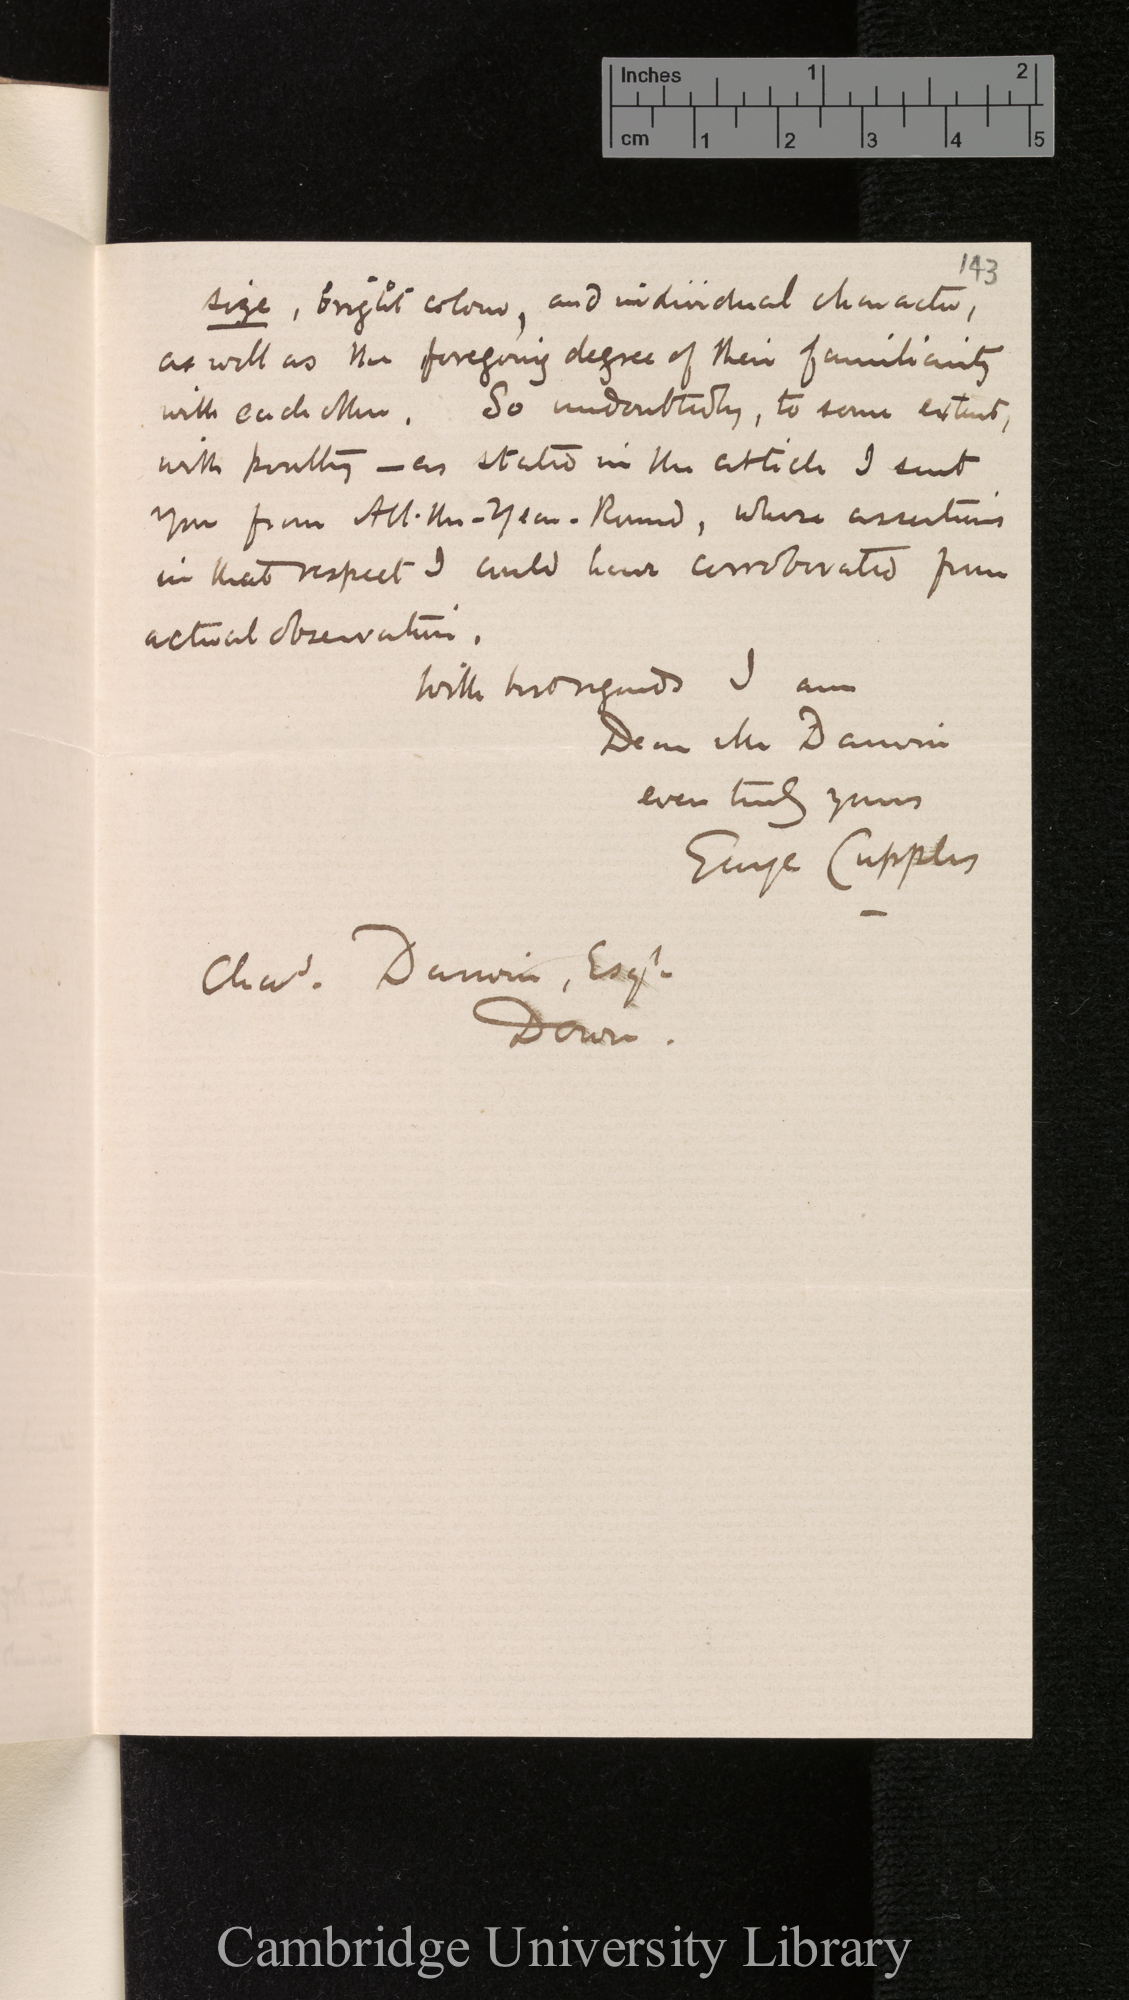 Inches 1 2
cm 1 2 3 4 5
143
size, bright colour, and individual character,
as well as the foregoing degree of their familiarity
with each other. So undoubtedly, to some extent,
with poultry — as stated in the article I sent
you from All-the-Year-Round, whose assertions
in that respect I could have corroborated from
actual observation.
With best regards I am
Dear Mr Darwin
ever truly yours
George Cupples
Chas. Darwin, Esqr.
Down.
Cambridge University Library